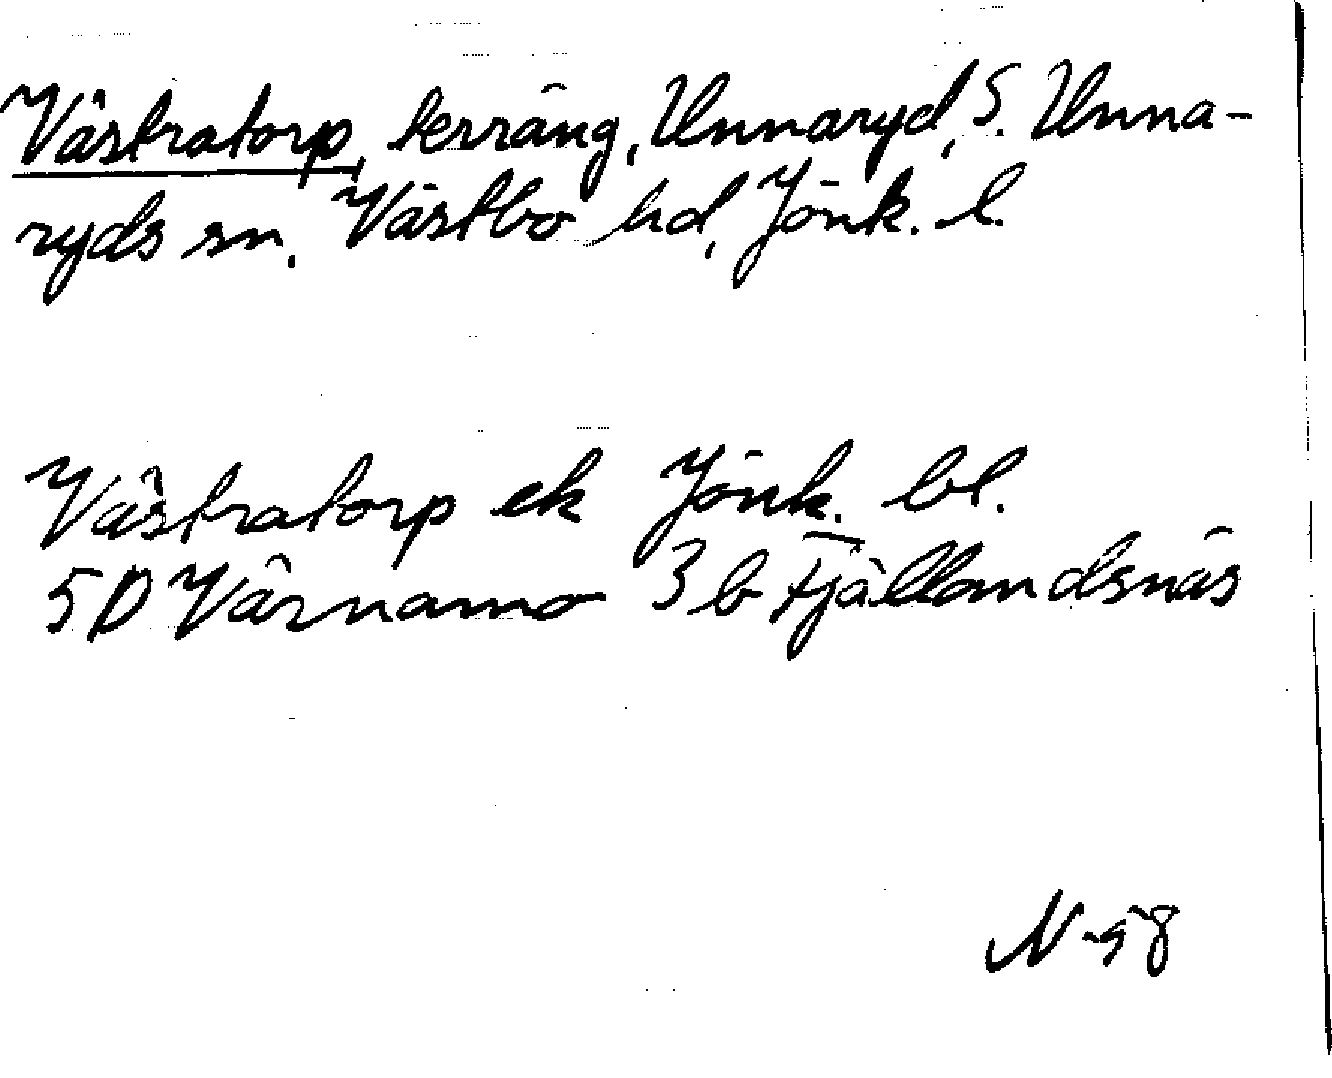 Västratorp, terräng, Unnaryd, S. Unna-
ryds sn, Västbo hd, Jönk. l.
Västratorp ek Jönk. bl.
5D Värnamo 3b Fjällandsnäs
N-58